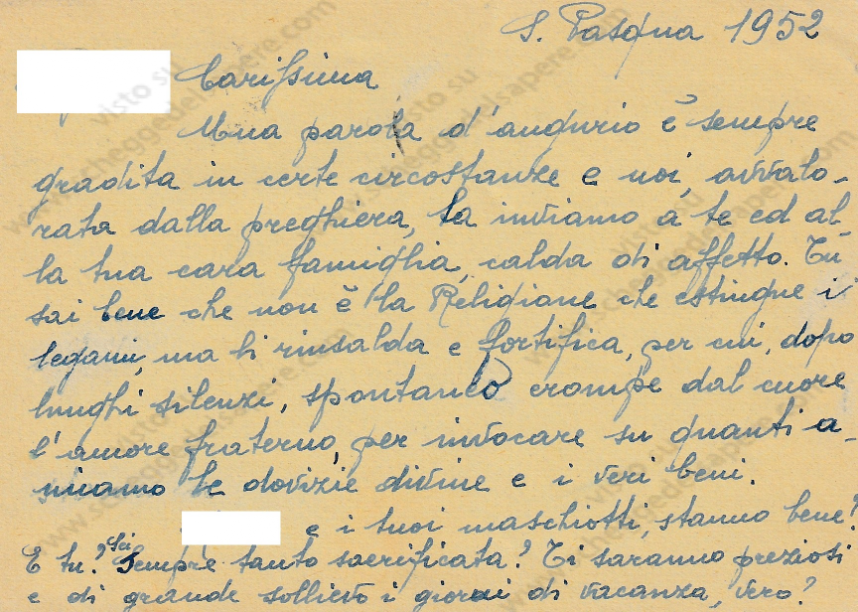 S. Pasqua 1952
Carissima
Una parola d'augurio è sempre
gradita in certe circostanze e noi, avvalo-
rata dalla preghiera, la inviamo a te ed al-
la tua cara famiglia, calda di affetto. Tu
sai bene che non è la Religione che estingue i
legami, ma li rinsalda e fortifica, per cui, dopo
lunghi silenzi, spontaneo erompe dal cuore
l'amore fraterno, per invocare su quanti a-
miamo le dovizie divine e i veri beni.
e i tuoi maschiotti, stanno bene?
E tu? Sei Sempre tanto sacrificata? Ti saranno preziosi
e di grande sollievo i giorni di vacanza, vero?
visto su
www.scheggedelsapere.com